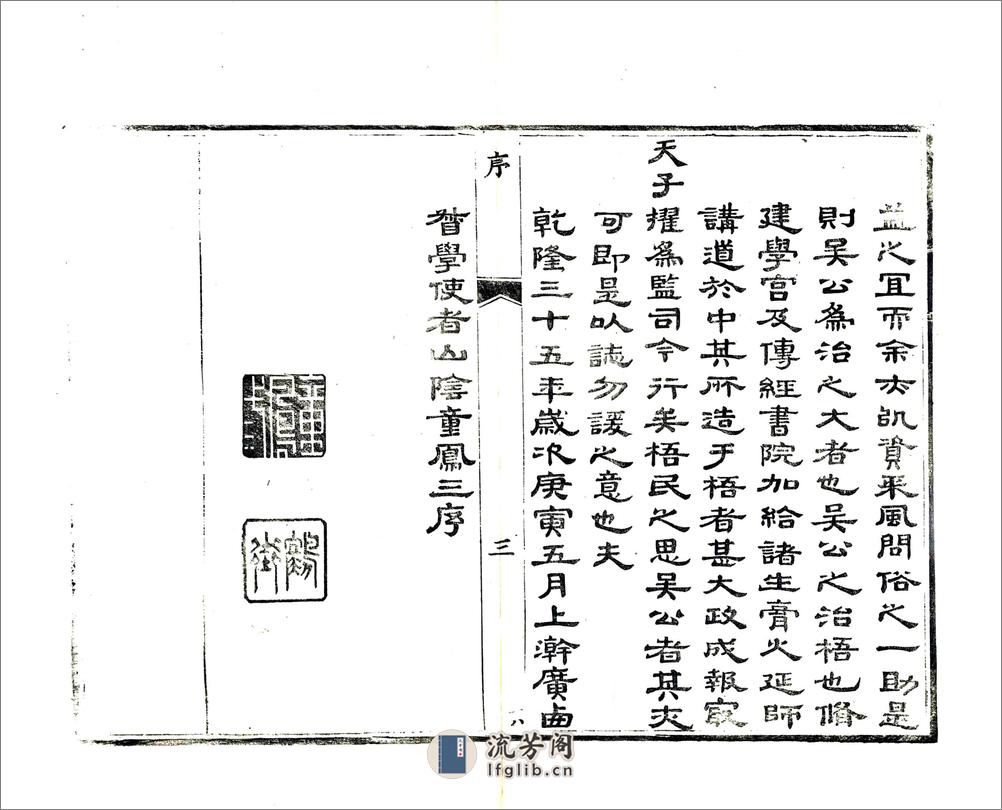 益之宜而余亦資采風問俗之一助是
則吳公為治之大者也吳公之治梧也脩
建學宮及傳經書院加給諸生膏火延師
講道於中其所造于梧者甚大政成報最
天子擢為監司今行矣梧民之思吳公者其亦
可即是以誌勿諼之意也夫
乾隆三十五年歲次庚寅五月上澣廣西
序
三
六
督學使者山陰童鳳三序
鶴街
流芳阁
lfglib.cn